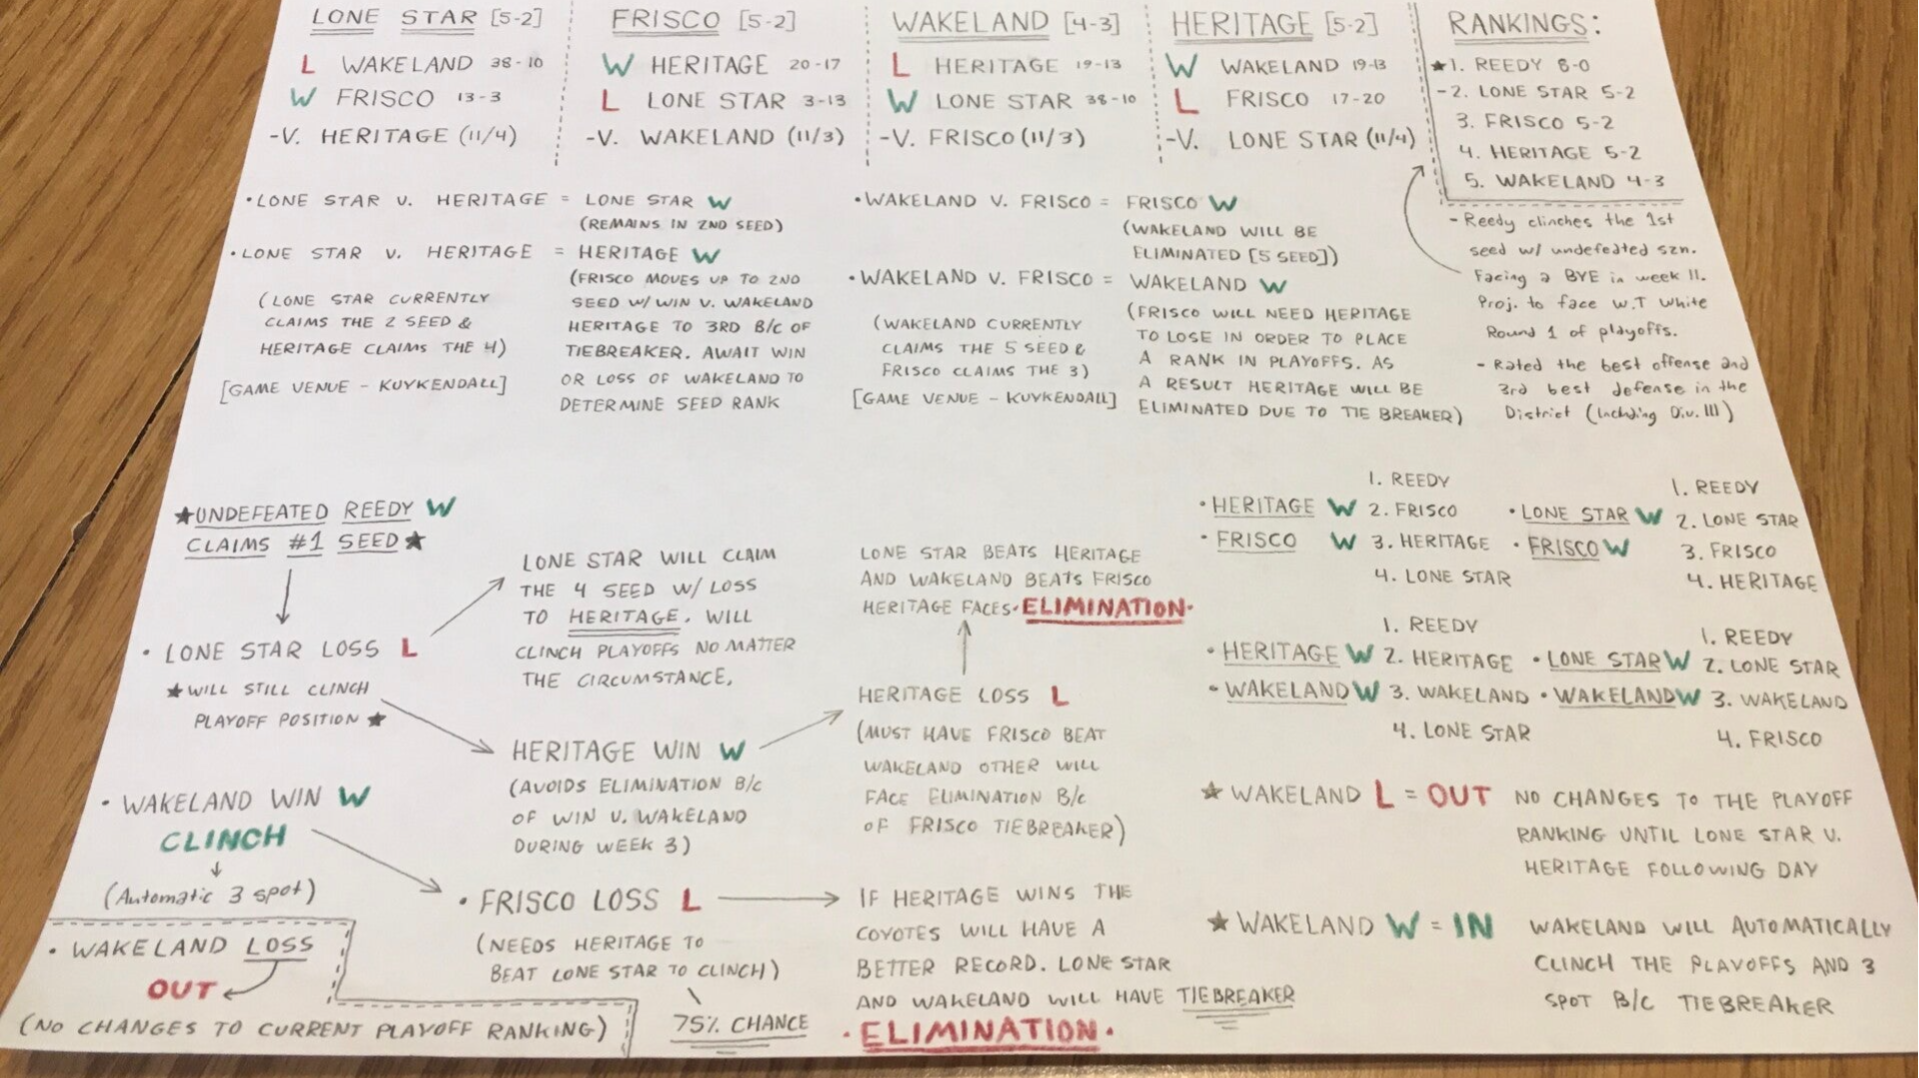 LONE STAR [5-2]
L WAKELAND 38-10
W FRISCO 13-3
-V. HERITAGE (11/4)
FRISCO [5-2]
W HERITAGE 20-17
L LONE STAR 3-13
-V. WAKELAND (11/3)
WAKELAND [4-3]
L HERITAGE 19-13
W LONE STAR 38-10
-V. FRISCO (11/3)
HERITAGE [5-2]
W WAKELAND 19-13
L FRISCO 17-20
-V. LONE STAR (11/4)
RANKINGS:
★1. REEDY 8-0
-2. LONE STAR 5-2
3. FRISCO 5-2
4. HERITAGE 5-2
5. WAKELAND 4-3
- Reedy clinches the 1st
seed w/ undefeated szn.
Facing a BYE in week 11.
Proj. to face W.T White
Round 1 of playoffs.
- Rated the best offense and
3rd best defense in the
District (Including Div. III)
• LONE STAR V. HERITAGE = LONE STAR W
(REMAINS IN 2ND SEED)
• LONE STAR V. HERITAGE = HERITAGE W
(LONE STAR CURRENTLY
CLAIMS THE 2 SEED &
HERITAGE CLAIMS THE 4)
[GAME VENUE - KUYKENDALL]
(FRISCO MOVES UP TO 2ND
SEED W/ WIN V. WAKELAND
HERITAGE TO 3RD B/C OF
TIEBREAKER. AWAIT WIN
OR LOSS OF WAKELAND TO
DETERMINE SEED RANK
• WAKELAND V. FRISCO = FRISCO W
(WAKELAND WILL BE
ELIMINATED [5 SEED])
• WAKELAND V. FRISCO = WAKELAND W
(WAKELAND CURRENTLY
CLAIMS THE 5 SEED &
FRISCO CLAIMS THE 3)
[GAME VENUE - KUYKENDALL]
(FRISCO WILL NEED HERITAGE
TO LOSE IN ORDER TO PLACE
A RANK IN PLAYOFFS. AS
A RESULT HERITAGE WILL BE
ELIMINATED DUE TO TIE BREAKER)
★UNDEFEATED REEDY W
CLAIMS #1 SEED★
• LONE STAR LOSS L
★WILL STILL CLINCH
PLAYOFF POSITION★
LONE STAR WILL CLAIM
THE 4 SEED W/ LOSS
TO HERITAGE. WILL
CLINCH PLAYOFFS NO MATTER
THE CIRCUMSTANCE.
HERITAGE WIN W
(AVOIDS ELIMINATION B/C
OF WIN V. WAKELAND
DURING WEEK 3)
LONE STAR BEATS HERITAGE
AND WAKELAND BEATS FRISCO
HERITAGE FACES •ELIMINATION•
HERITAGE LOSS L
(MUST HAVE FRISCO BEAT
WAKELAND OTHER WILL
FACE ELIMINATION B/C
OF FRISCO TIEBREAKER)
• WAKELAND WIN W
CLINCH
(Automatic 3 spot)
• WAKELAND LOSS
OUT
(NO CHANGES TO CURRENT PLAYOFF RANKING)
• FRISCO LOSS L
(NEEDS HERITAGE TO
BEAT LONE STAR TO CLINCH)
75% CHANCE
IF HERITAGE WINS THE
COYOTES WILL HAVE A
BETTER RECORD. LONE STAR
AND WAKELAND WILL HAVE TIEBREAKER
•ELIMINATION•
• HERITAGE W
• FRISCO W
1. REEDY
2. FRISCO
3. HERITAGE
4. LONE STAR
• LONE STAR W
• FRISCO W
1. REEDY
2. LONE STAR
3. FRISCO
4. HERITAGE
• HERITAGE W
• WAKELAND W
1. REEDY
2. HERITAGE
3. WAKELAND
4. LONE STAR
• LONE STAR W
• WAKELAND W
1. REEDY
2. LONE STAR
3. WAKELAND
4. FRISCO
★ WAKELAND L = OUT NO CHANGES TO THE PLAYOFF
RANKING UNTIL LONE STAR V.
HERITAGE FOLLOWING DAY
★ WAKELAND W = IN WAKELAND WILL AUTOMATICALLY
CLINCH THE PLAYOFFS AND 3
SPOT B/C TIEBREAKER